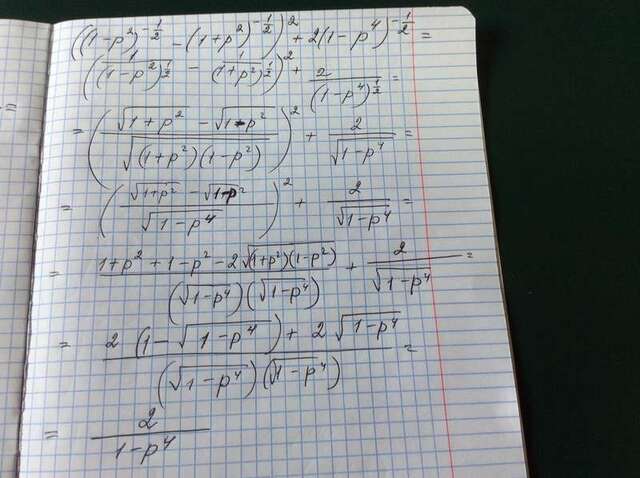 ((1-p²)^{-1/2} - (1+p²)^{-1/2})² + 2(1-p⁴)^{-1/2} =
(1/(1-p²)^{1/2} - 1/(1+p²)^{1/2})² + 2/(1-p⁴)^{1/2} =
= ((√1+p² - √1-p²)/√(1+p²)(1-p²))² + 2/√1-p⁴ =
= ((√1+p² - √1-p²)/√1-p⁴)² + 2/√1-p⁴ =
= (1+p²+1-p²-2√(1+p²)(1-p²))/((√1-p⁴)(√1-p⁴)) + 2/√1-p⁴ =
= (2(1-√1-p⁴) + 2√1-p⁴)/((√1-p⁴)(√1-p⁴)) =
= 2/(1-p⁴)